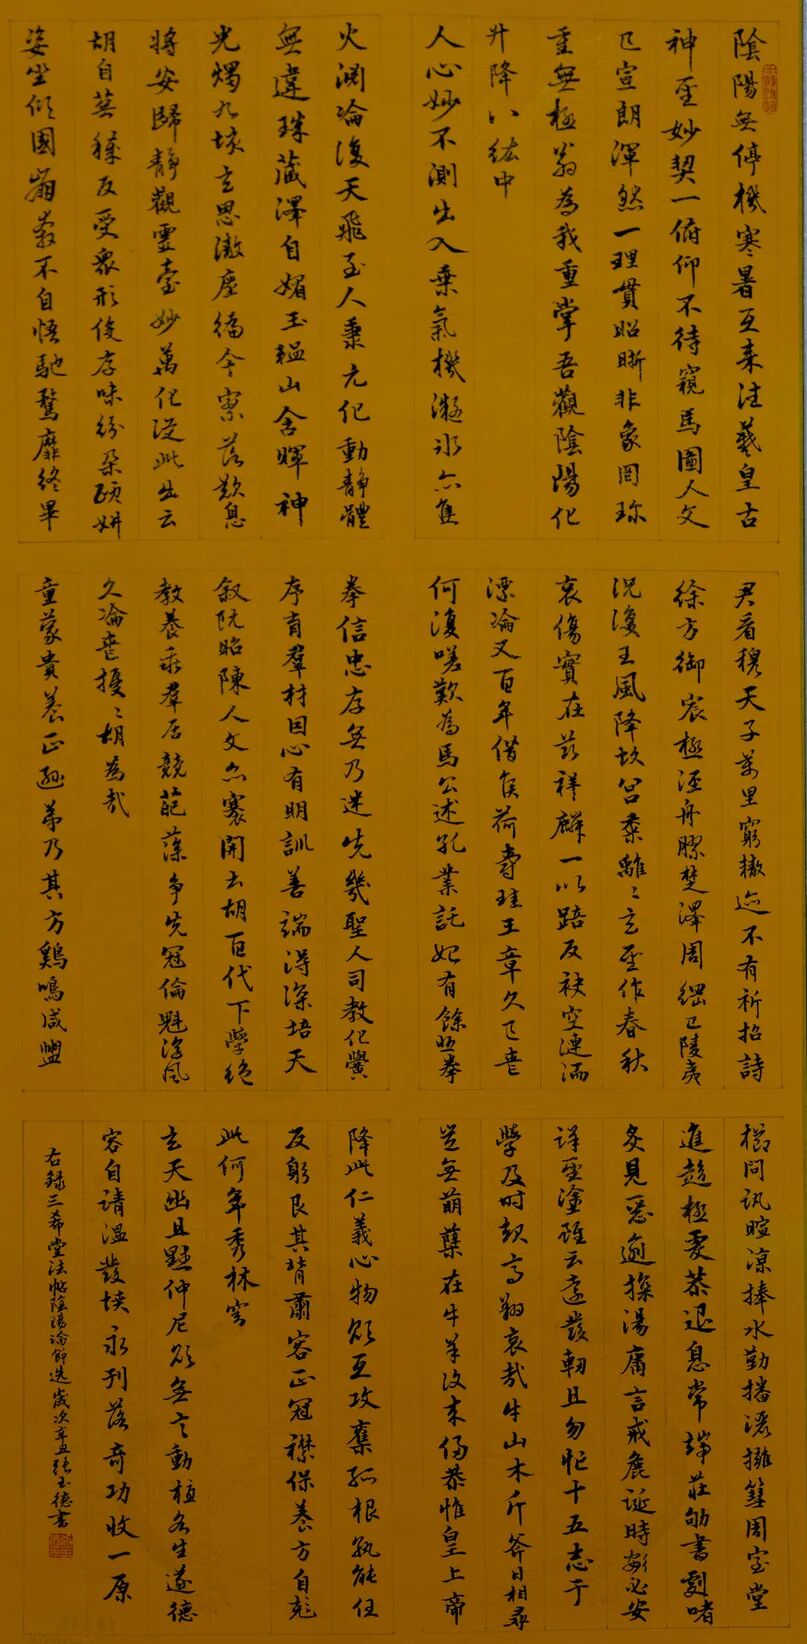 陰陽無停機寒暑互来往羲皇古
神聖妙契一俯仰不待窺馬圖人文
已宣朗渾然一理貫昭晰非象罔珎
重無極翁為我重掌吾觀陰陽化
升降八紘中
人心妙不測出入乗氣機凝氷亦焦
火淵淪復天飛至人秉元化動靜體
無違珠藏澤自媚玉韞山含暉神
光燭九垓玄思徹塵編今寥落歎息
將安歸靜觀靈臺妙萬化從此出云
胡自蕪穢反受衆形役厚味紛朵頤妍
姿坐傾國崩奔不自悟馳騖靡終畢
君看穆天子萬里窮轍迹不有祈招詩
徐方御宸極涇舟膠楚澤周綱已陵夷
況復王風降故宮黍離〻玄聖作春秋
哀傷實在兹祥麟一以踣反袂空漣洏
漂淪又百年僭侯荷爵珪王章久已喪
何復嗟歎為馬公述孔業託始有餘悲拳
拳信忠厚無乃迷先幾聖人司教化黌
序育羣材因心有明訓善端得深培天
敘既昭陳人文亦褰開云胡百代下學絕
教養乖羣居競葩藻爭先冠倫魁淳風
久淪喪擾〻胡為哉
童蒙貴養正遜弟乃其方鷄鳴咸盥
櫛問訊暄涼捧水勤播灑擁篲周室堂
進趨極虔恭退息常端莊劬書劇嗜
炙見惡逾探湯庸言戒麁誕時行必安
詳聖塗雖云遠發軔且勿忙十五志于
學及時起高翔哀哉牛山木斤斧日相尋
豈無萌蘖在牛羊復来侵恭惟皇上帝
降此仁義心物欲互攻奪孤根孰能任
反躬艮其背肅容正冠襟保養方自兹
此何年秀林穹
玄天幽且黙仲尼欲無言動植各生遂德
容自清溫發憤永刊落奇功收一原
右錄三希堂法帖陰陽論節選歲次辛丑張玉德書